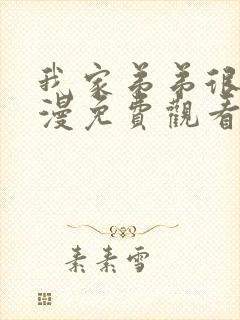 我家弟弟很
漫免費觀看
素素雪